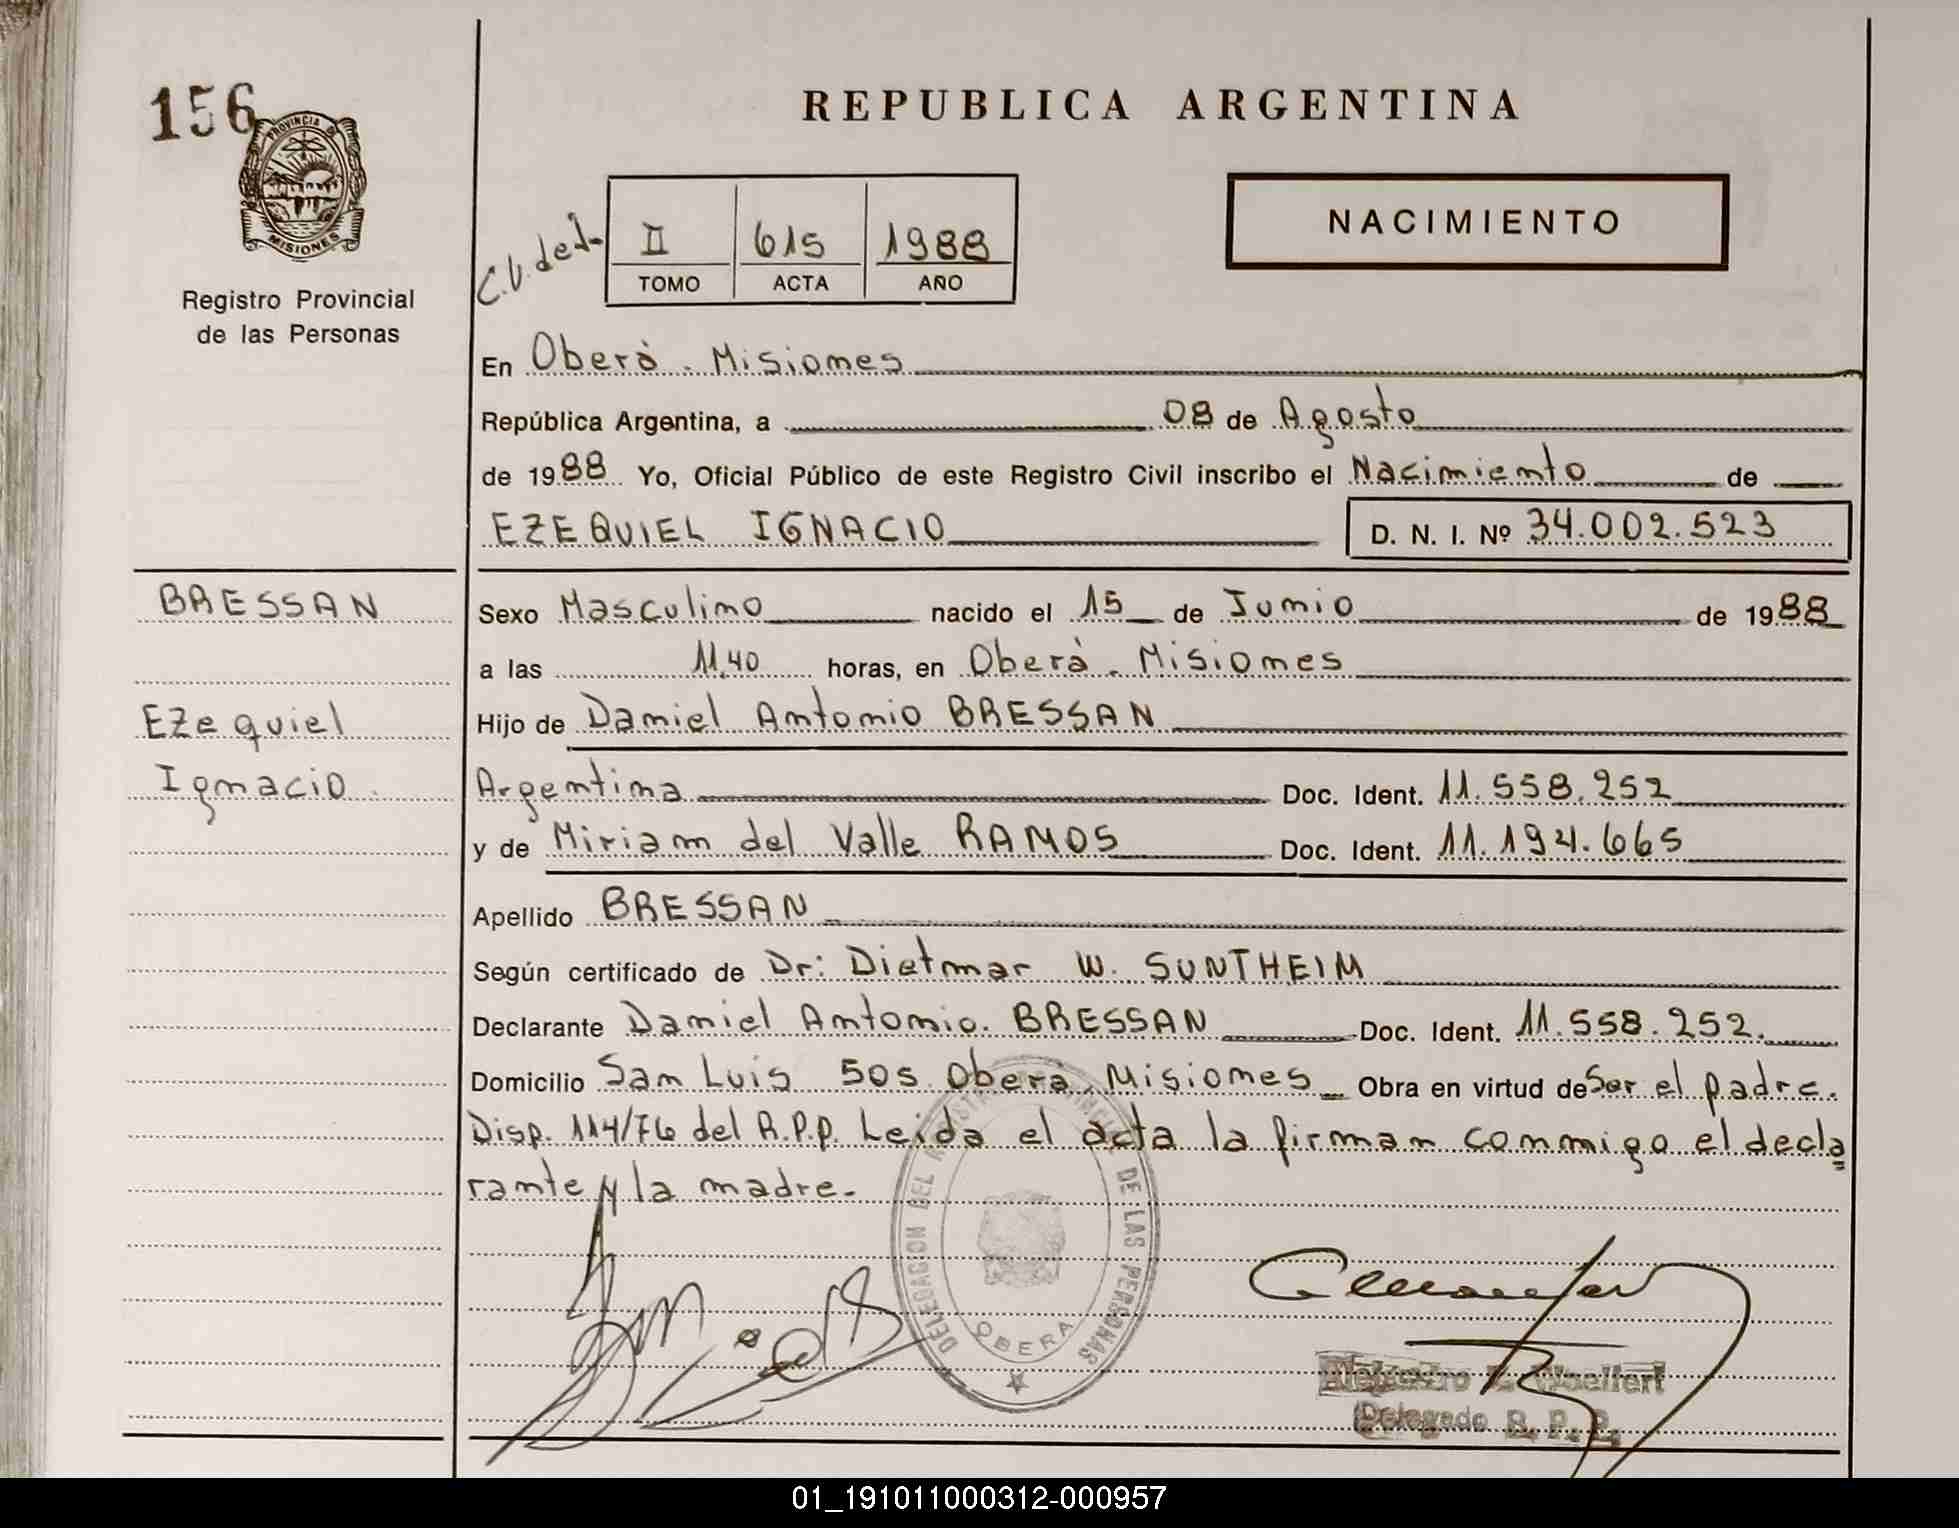 156
PROVINCIA DE
MISIONES
Registro Provincial
de las Personas
REPUBLICA ARGENTINA
II 615 1988
TOMO ACTA AÑO
NACIMIENTO
En Oberà. Misiones
República Argentina, a 08 de Agosto
de 1988 Yo, Oficial Público de este Registro Civil inscribo el Nacimiento de
EZEQUIEL IGNACIO D. N. I. Nº 34.002.523
BRESSAN
Ezequiel
Ignacio
Sexo Masculino nacido el 15 de Junio de 1988
a las 11,40 horas, en Oberà. Misiones
Hijo de Daniel Antonio BRESSAN
Argentina Doc. Ident. 11.558.252
y de Miriam del Valle RAMOS Doc. Ident. 11.194.665
Apellido BRESSAN
Según certificado de Dr: Dietmar W. SUNTHEIM
Declarante Daniel Antonio. BRESSAN Doc. Ident. 11.558.252.
Domicilio San Luis 505 Oberà. Misiones Obra en virtud de Ser el padre.
Disp. 114/76 del R.P.P. Leida el acta la firman conmigo el decla
rante y la madre.
DELEGACION DEL REGISTRO PROVINCIAL DE LAS PERSONAS
OBERA
Alejandro Woelfert
Delegado R. P. P.
01_191011000312-000957